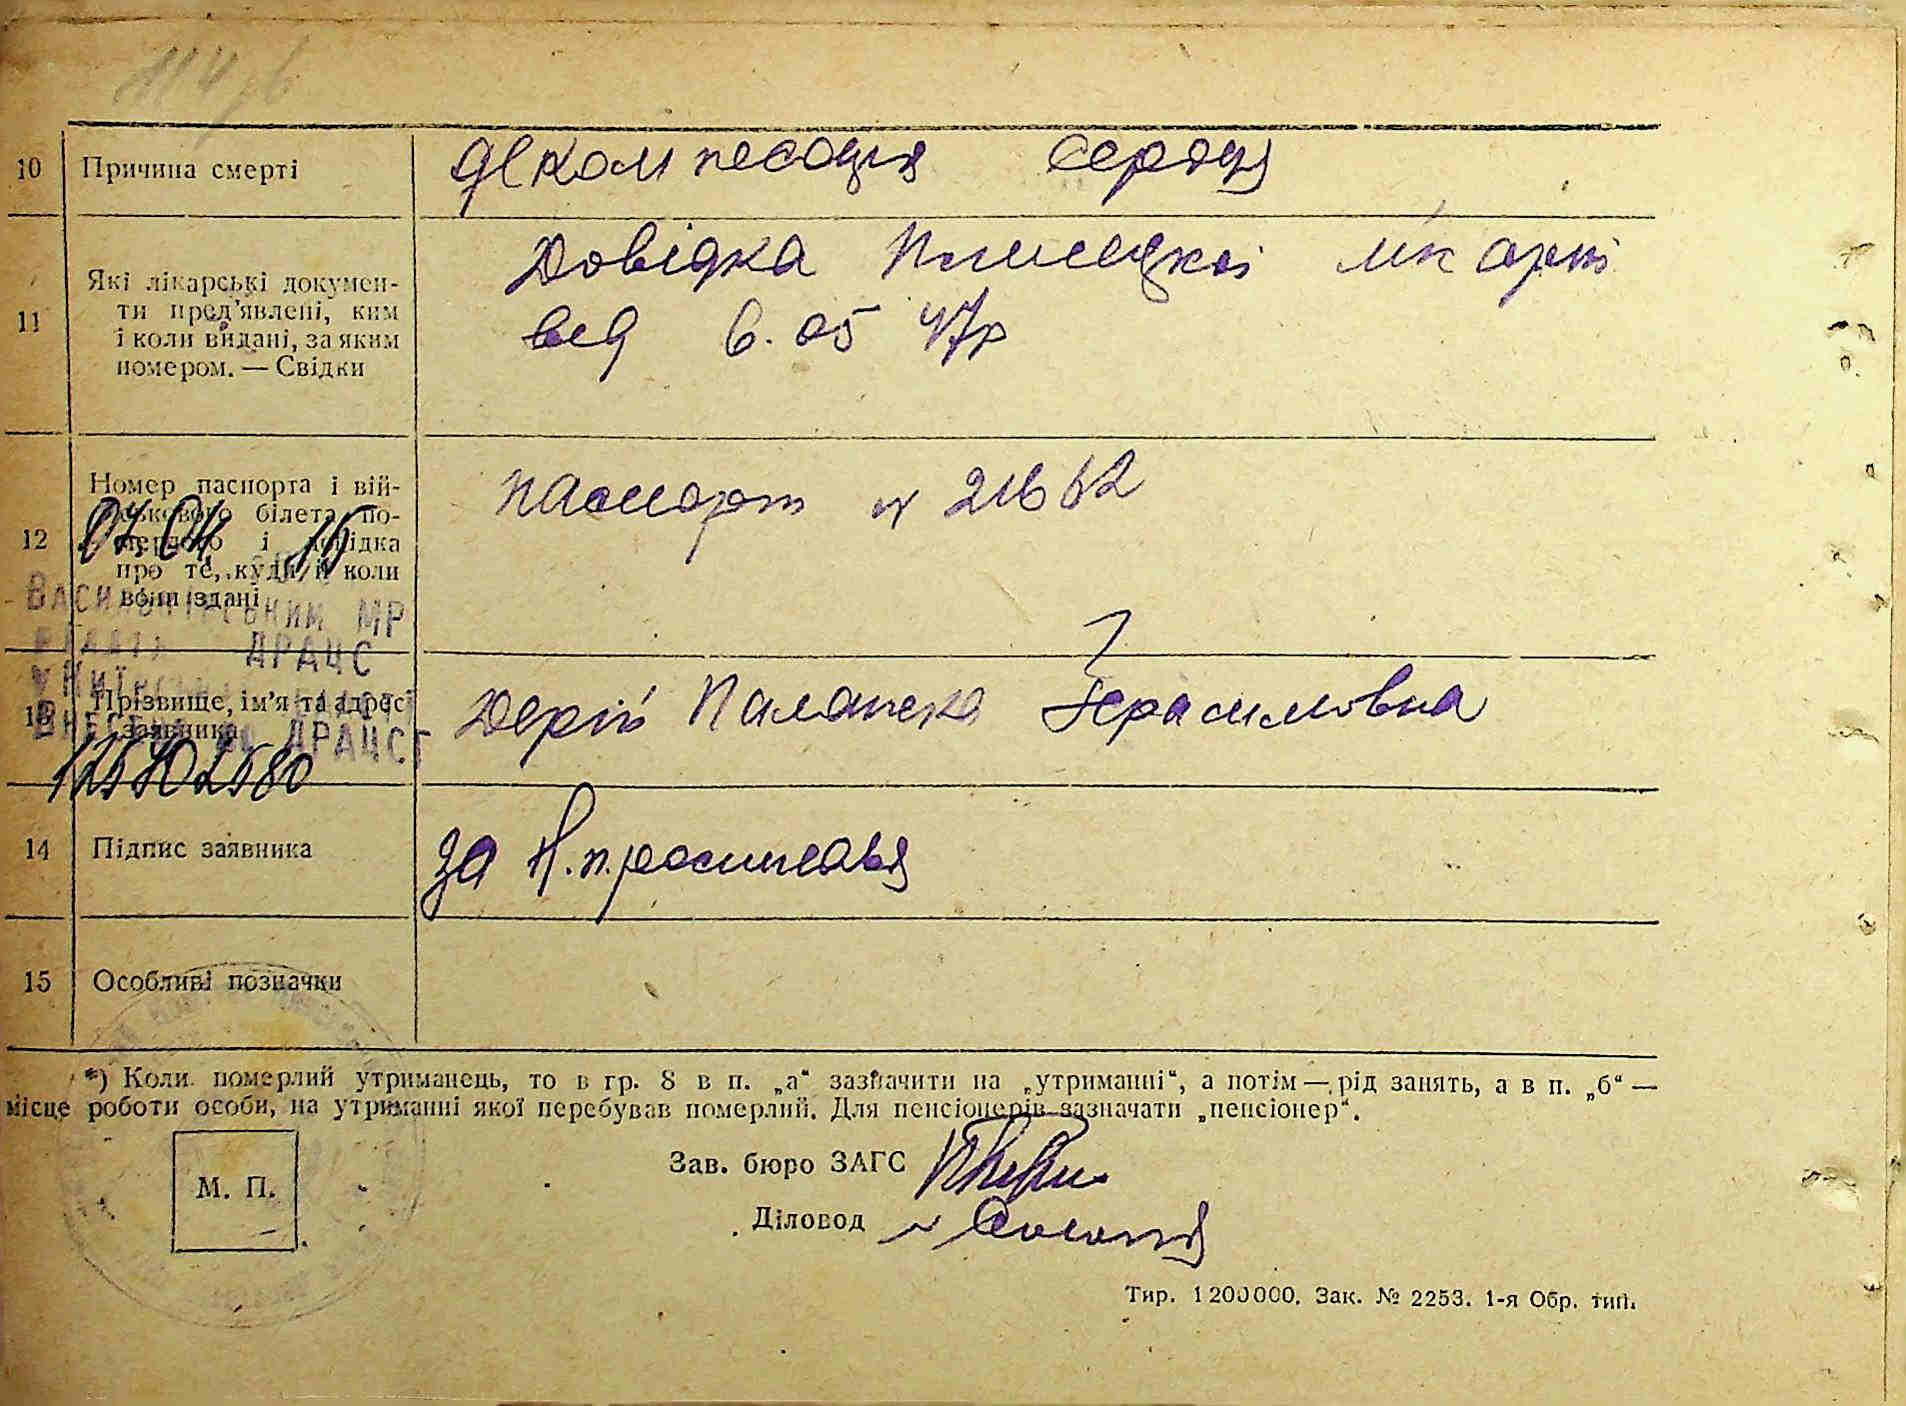 10 Причина смерті декомпесація серця
11 Які лікарські докумен-
ти пред'явлені, ким
і коли видані, за яким
номером. — Свідки
Довідка лікарні
вед 6.05 47р
12 Номер паспорта і вій-
ськового білета по-
мерлого і довідка
про те, куди й коли
вони здані
паспорт № 21662
07.04 15
Васильківським МР
ДРАЦС
13 Прізвище, ім'я та адрес
заявника
Дерій Палажка Герасимовна
ДРАЦСГ
14 Підпис заявника за
15 Особливі позначки
*) Коли померлий утриманець, то в гр. 8 в п. „а“ зазначити на „утриманні“, а потім — рід занять, а в п. „б“ —
місце роботи особи, на утриманні якої перебував померлий. Для пенсіонерів зазначати „пенсіонер“.
М. П.
Зав. бюро ЗАГС
Діловод
Тир. 1200000. Зак. № 2253. 1-я Обр. тип.